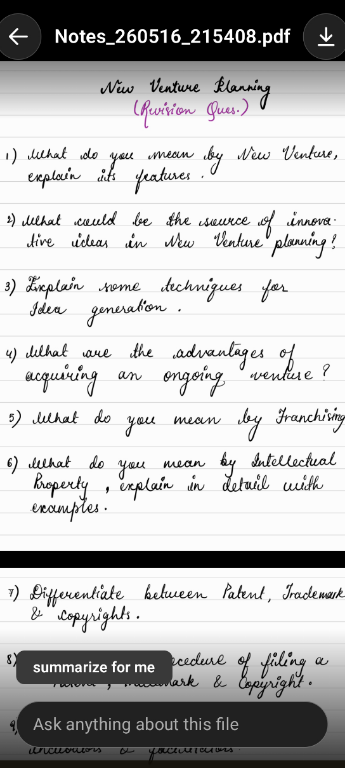 Notes_260516_215408.pdf
New Venture Planning
(Revision Ques.)
1) What do you mean by New Venture,
explain its features.
2) What could be the source of innova-
tive ideas in New Venture planning?
3) Explain some techniques for
Idea generation.
4) What are the advantages of
acquiring an ongoing venture?
5) What do you mean by Franchising
6) What do you mean by Intellectual
Property, explain in detail with
examples.
7) Differentiate between Patent, Trademark
& copyrights.
8) procedure of filing a
summarize for me
& Copyright.
Ask anything about this file